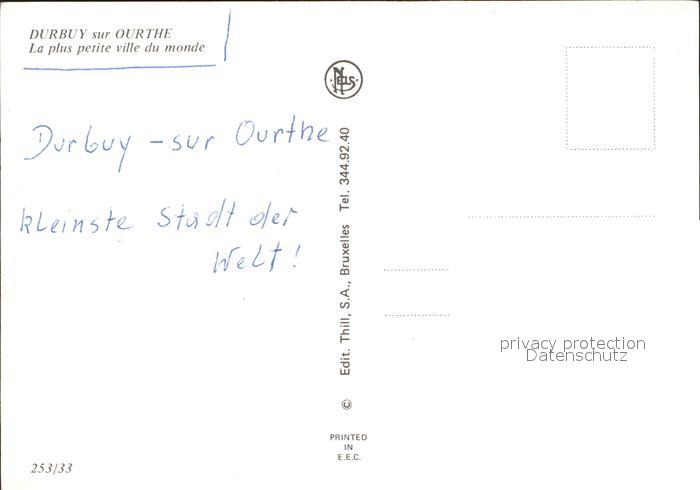 DURBUY sur OURTHE
La plus petite ville du monde
Durbuy - sur Ourthe
kleinste Stadt der
Welt!
253/33
NELS
Edit. Thill, S.A., Bruxelles Tel. 344.92.40
©
PRINTED
IN
E.E.C.
privacy protection
Datenschutz